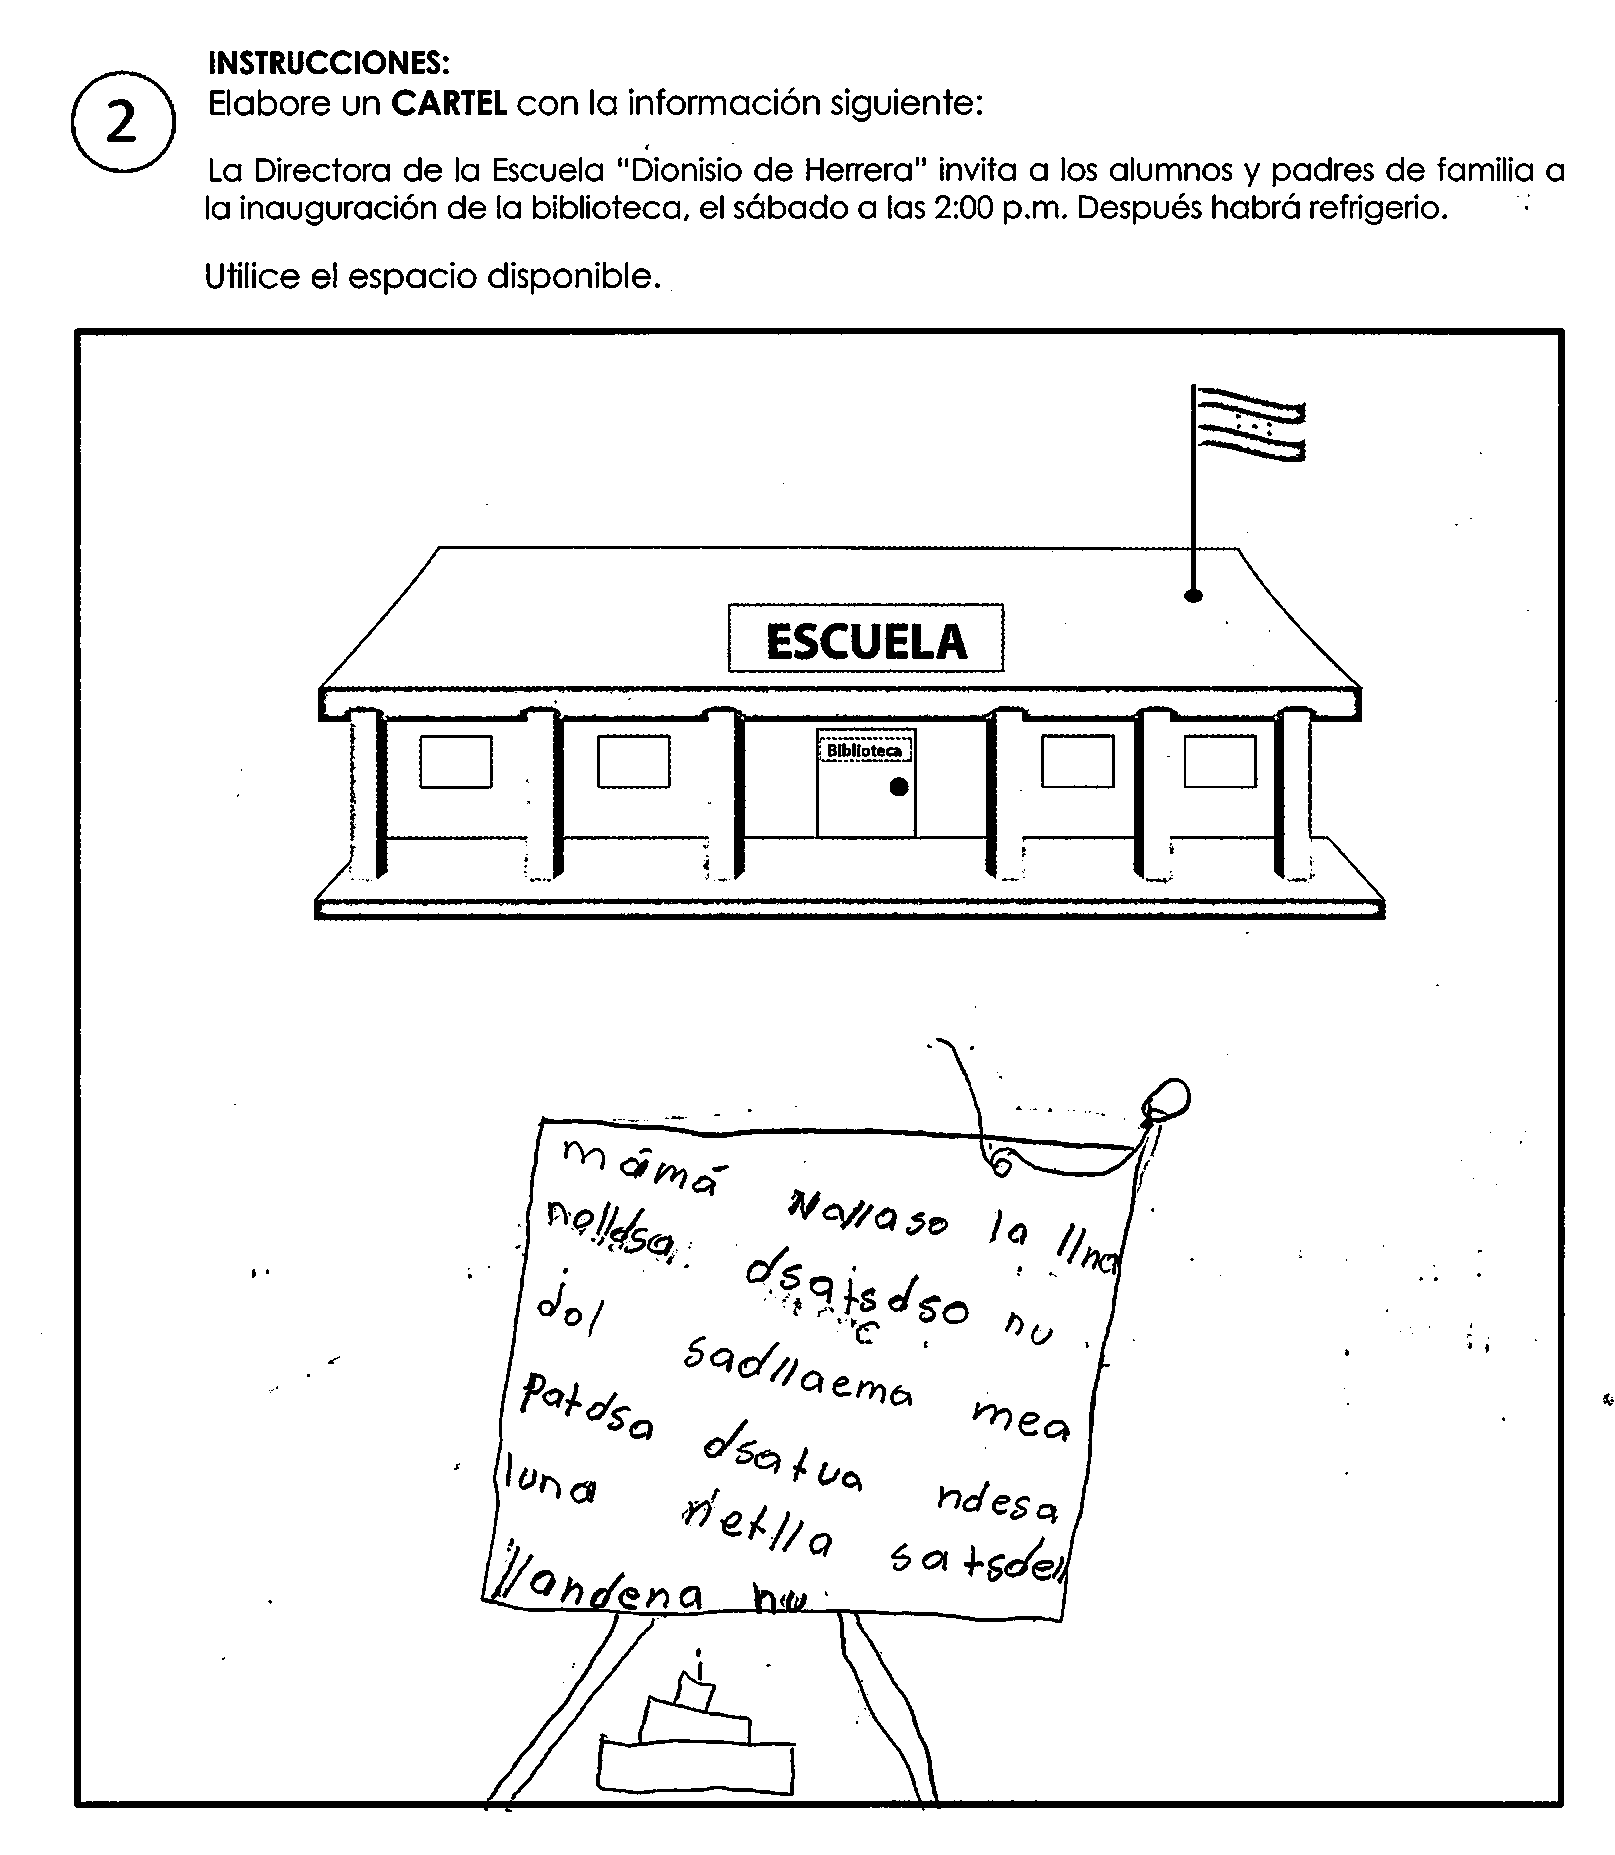 INSTRUCCIONES:
2
Elabore un CARTEL con la información siguiente:
La Directora de la Escuela "Dionisio de Herrera" invita a los alumnos y padres de familia a
la inauguración de la biblioteca, el sábado a las 2:00 p.m. Después habrá refrigerio.
Utilice el espacio disponible.
ESCUELA
Biblioteca
mámá Nallaso la llna
nelldsa dsatsdso nu
dol sadllaema mea
patdsa dsatua ndesa
luna netlla satsdell
llandena nu